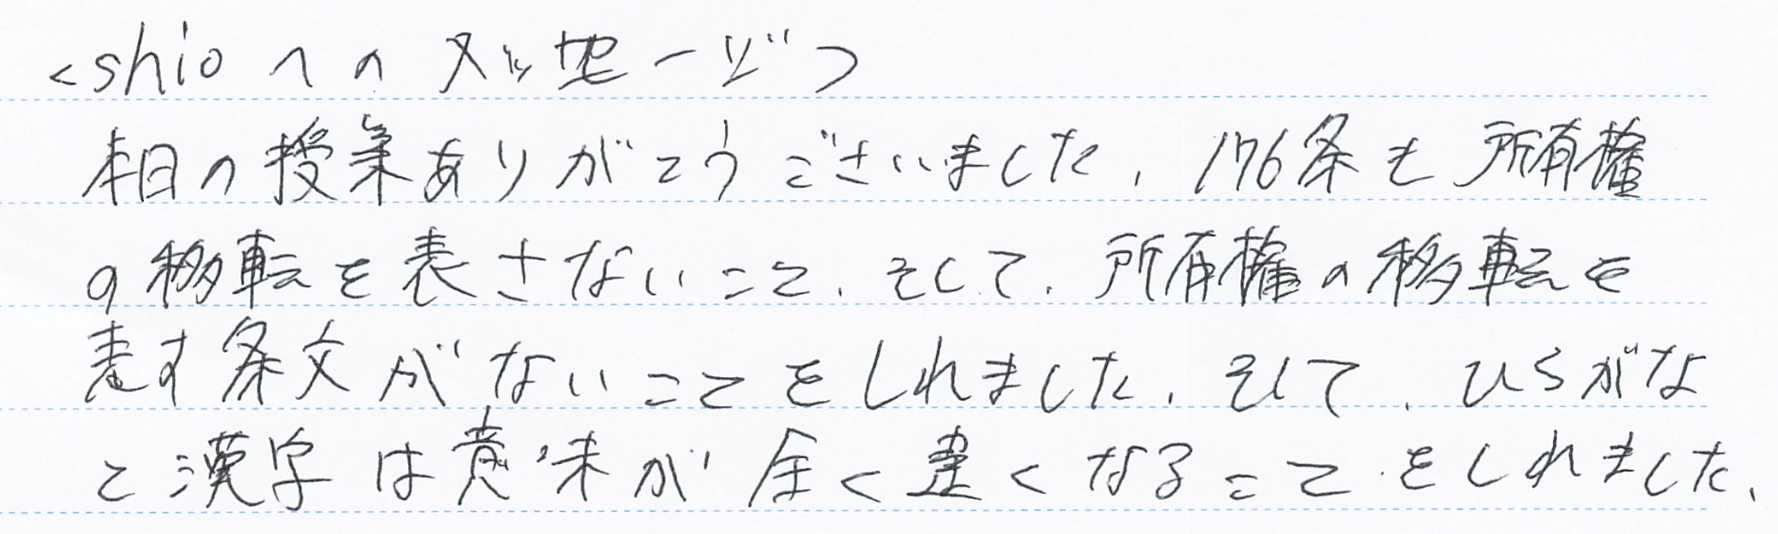 <shioへのメッセージ>
本日の授業ありがとうございました、176条も所有権
の移転を表さないこと、そして、所有権の移転を
表す条文がないことをしれました、そして、ひらがな
と漢字は意味が全く違くなることをしれました、